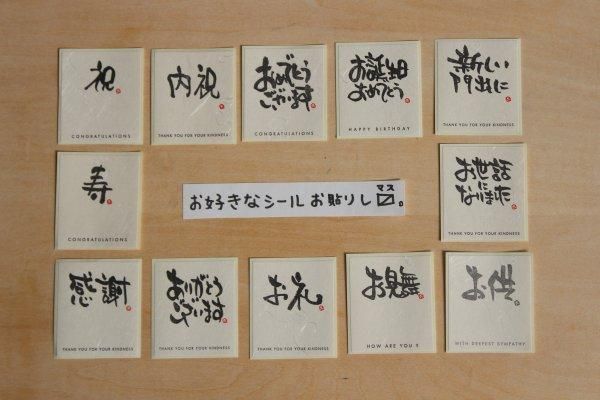 祝
CONGRATULATIONS
内祝
THANK YOU FOR YOUR KINDNESS
おめでとう
ございます
CONGRATULATIONS
お誕生日
おめでとう
HAPPY BIRTHDAY
新しい
門出に
THANK YOU FOR YOUR KINDNESS
寿
CONGRATULATIONS
お好きなシールお貼りし〼。
マス
お世話
に
なりました
THANK YOU FOR YOUR KINDNESS
感謝
THANK YOU FOR YOUR KINDNESS
ありがとう
ございます
THANK YOU FOR YOUR KINDNESS
お礼
THANK YOU FOR YOUR KINDNESS
お見舞
HOW ARE YOU ?
お供
WITH DEEPEST SYMPATHY